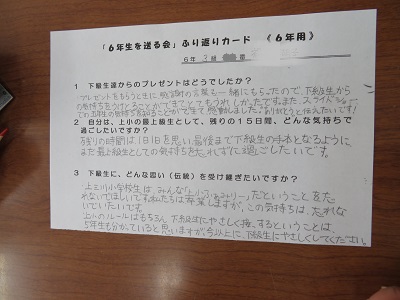 「6年生を送る会」ふり返りカード 《6年用》
6年 3組
1 下級生達からのプレゼントはどうでしたか?
プレゼントをもらうと共に歌詞の言葉も一緒にもらったので下級生から
の気持ちをうけとることができてとてもうれしかったです。また、スライド
での 気持ちを知ることができて感動しました。ありがとうと伝えたいです!
2 自分は、上小の最上級生として、残りの15日間、どんな気持ちで
過ごしたいですか?
残りの時間は1日1日を思い、最後まで下級生の手本となるように
また最上級生としての気持ちをわすれずに過ごしたいです。
3 下級生に、どんな思い(伝統)を受け継ぎたいですか?
上三川小学校生は、みんな「上小ふぁみりー」だということをわす
れないでほしいです。私たちは卒業しますが、この気持ちは、忘れな
いでいたいです。
上小のルールはもちろん、下級生にやさしく接するということは、
5年生も分かっていると思いますが今以上に、下級生にやさしくしてください。